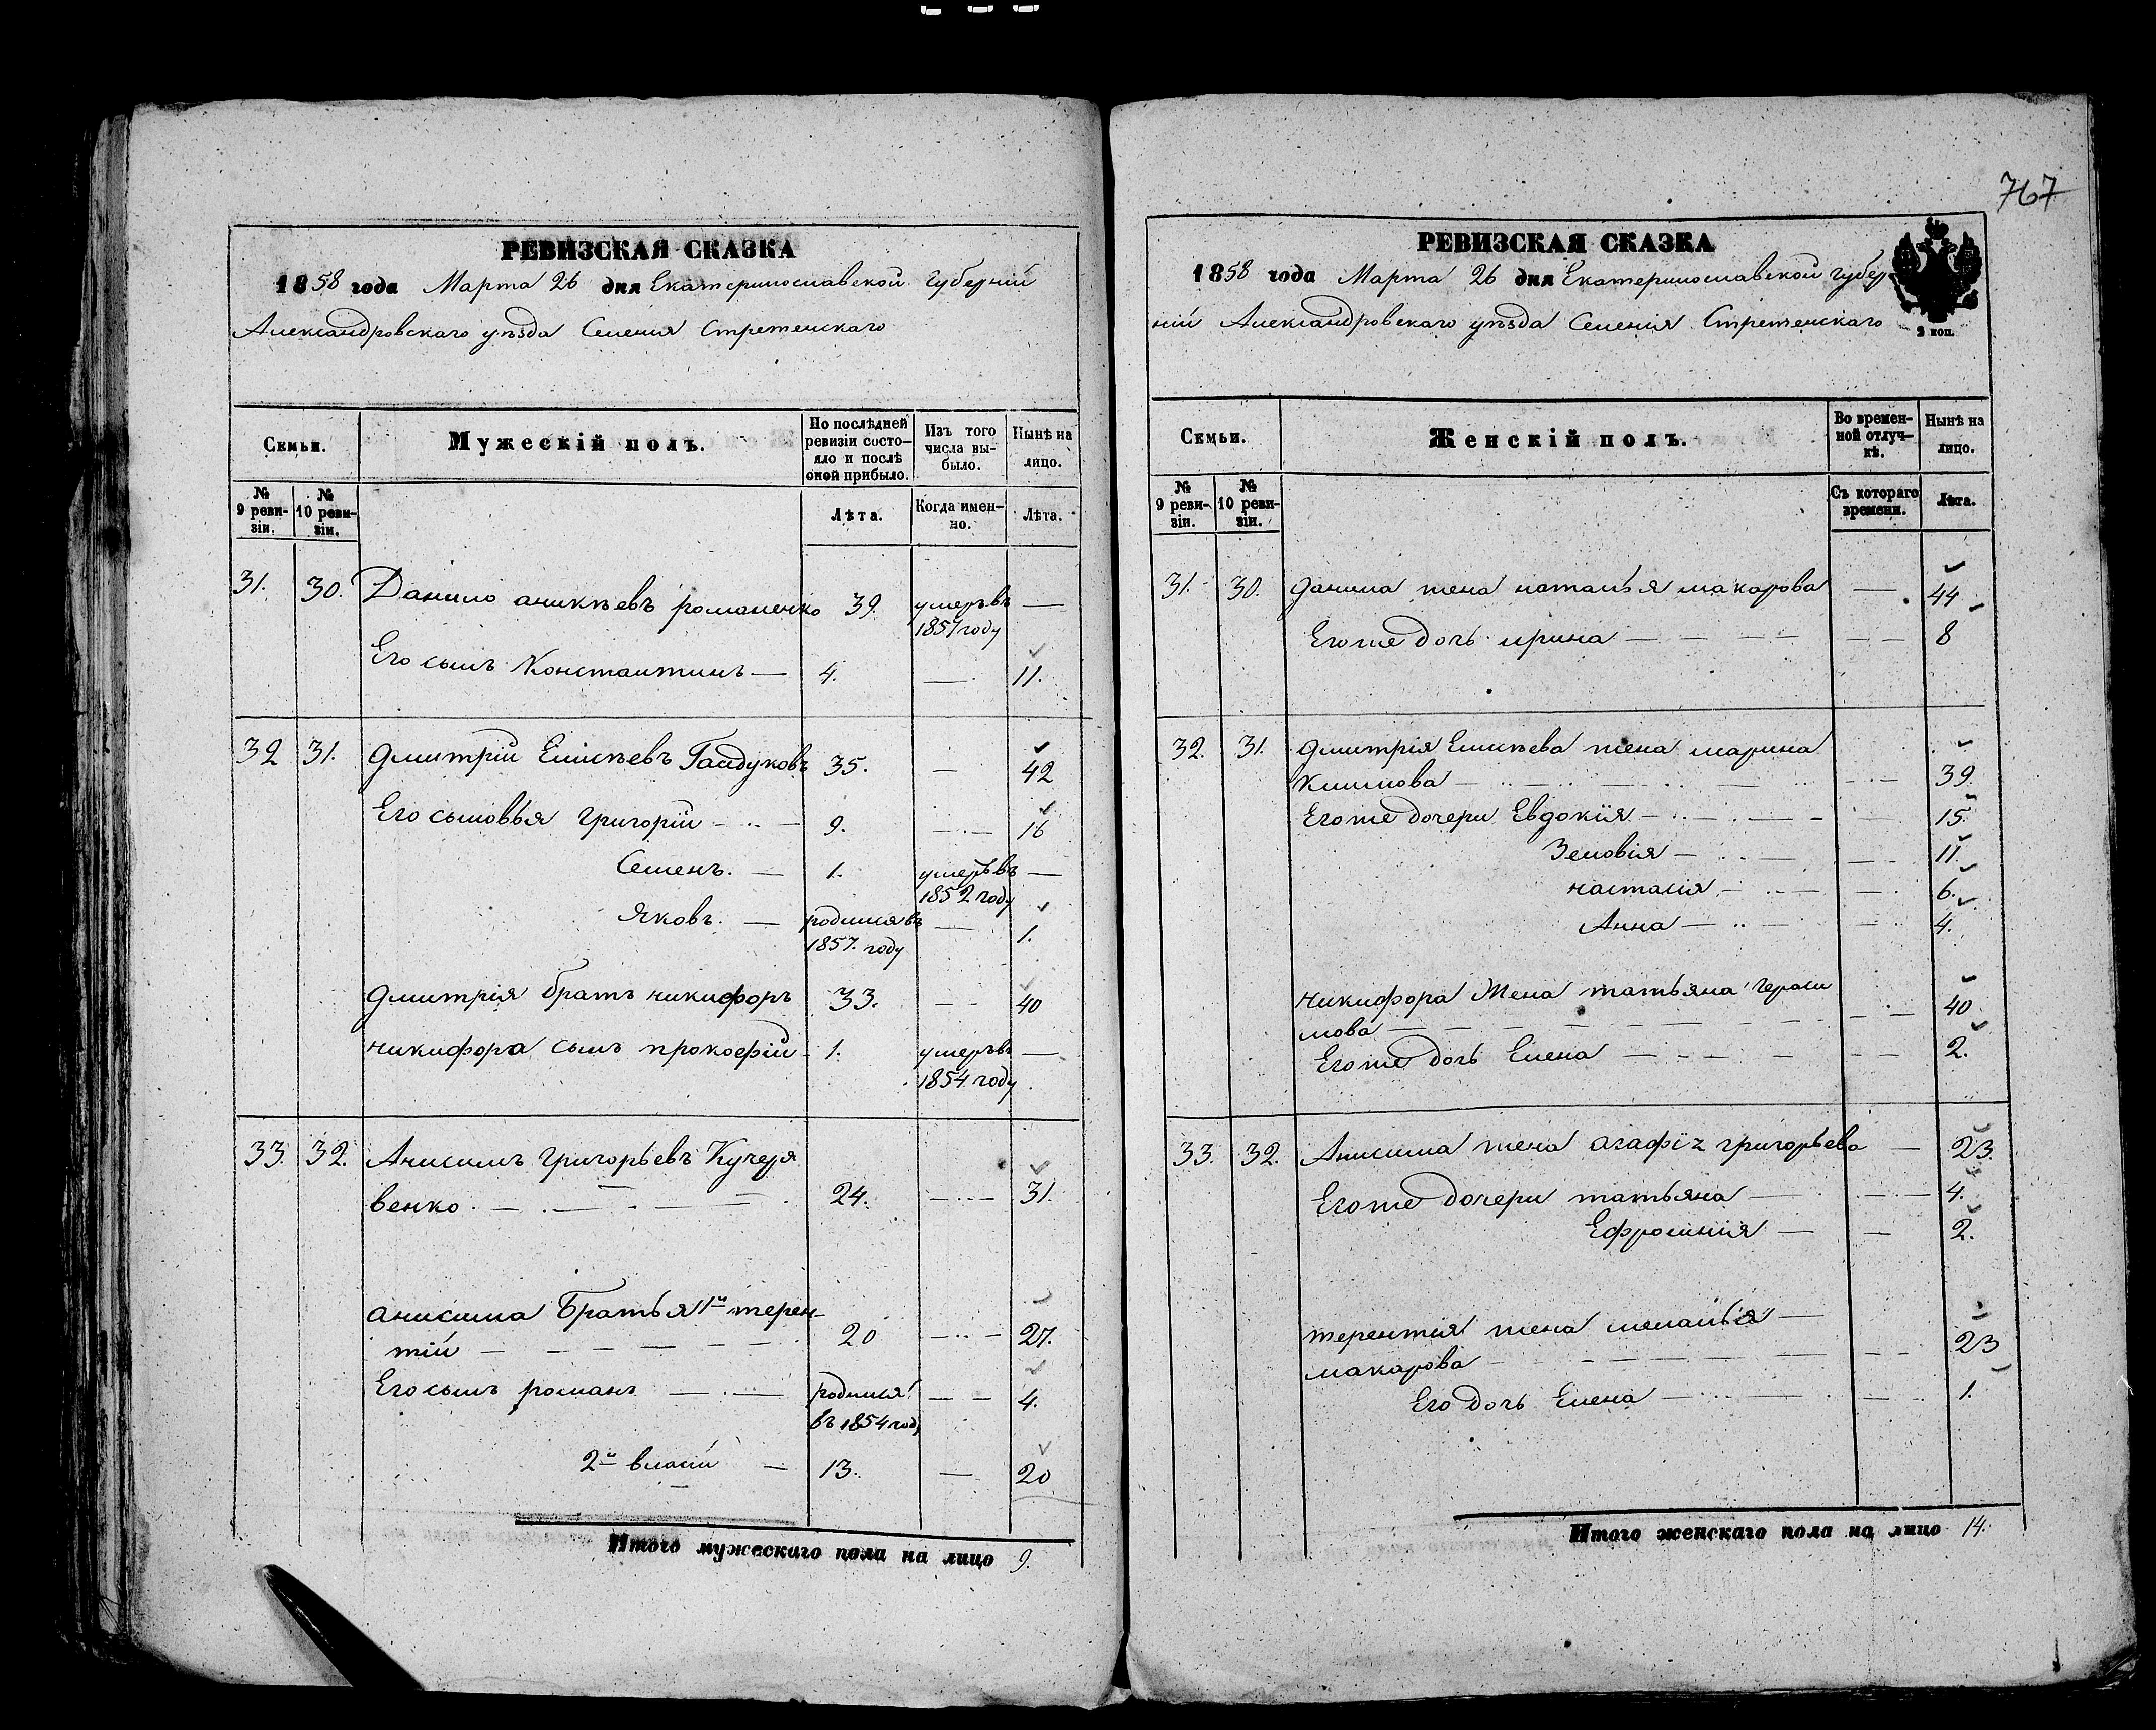 767
РЕВИЗСКАЯ СКАЗКА
1858 года Марта 26 дня Екатеринославской Губерній
Александровскаго уѣзда Селенія Стретенскаго
Семьи.
Мужескій полъ.
По послѣдней ревизіи состо-
яло и послѣ
оной прибыло.
Изъ того
числа вы-
было.
Нынѣ на
лицо.
№
9 реви-
зіи.
№
10 реви-
зіи.
Лѣта.
Когда имен-
но.
Лѣта.
31. 30. Данило аникѣевъ романенко 39. умеръ въ —
1857 году
Его сынъ Константинъ — 4. — 11.
32 31. Дмитрій Елисѣевъ Гайдуковъ 35. — 42
Его сыновья григорій — 9. — 16
Семенъ. — 1. умеръ въ —
1852 году
Яковъ. — родился въ — 1.
1857. году
Дмитрія братъ никифоръ 33. — 40
никифора сынъ прокофій 1. умеръ въ —
1854 году
33. 32. Анисимъ григорьевъ Кучеря
венко. — 24. — 31.
анисима Братья 1й терен-
тій — 20 — 27.
Его сынъ романъ — родился — 4.
въ 1854 год
2й власій — 13. — 20
Итого мужескаго пола на лицо 9.
РЕВИЗСКАЯ СКАЗКА
1858 года Марта 26 дня Екатеринославской губер
ній Александровскаго уѣзда Селенія Стретенскаго
2 коп.
Семьи.
Женскій полъ.
Во времен-
ной отлуч-
кѣ.
Нынѣ на
лицо.
№
9 реви-
зіи.
№
10 реви-
зіи.
Съ котораго
времени.
Лѣта.
31. 30. данила жена наталья макарова — 44
Его же дочь ирина — 8
32. 31. Дмитрія Елисѣева жена марина
Климова — 39.
Его же дочери Евдокія — 15.
Зеновія — 11.
настасія — 6.
Анна — 4.
никифора Жена татьяна гераси
мова — 40
Его же дочь Елена — 2.
33. 32. Анисима жена агафія григорьева — 23.
Его же дочери татьяна — 4.
Ефросинія — 2.
терентія жена меланья —
макарова — 23
Его дочь Елена — 1.
Итого женскаго пола на лицо 14.